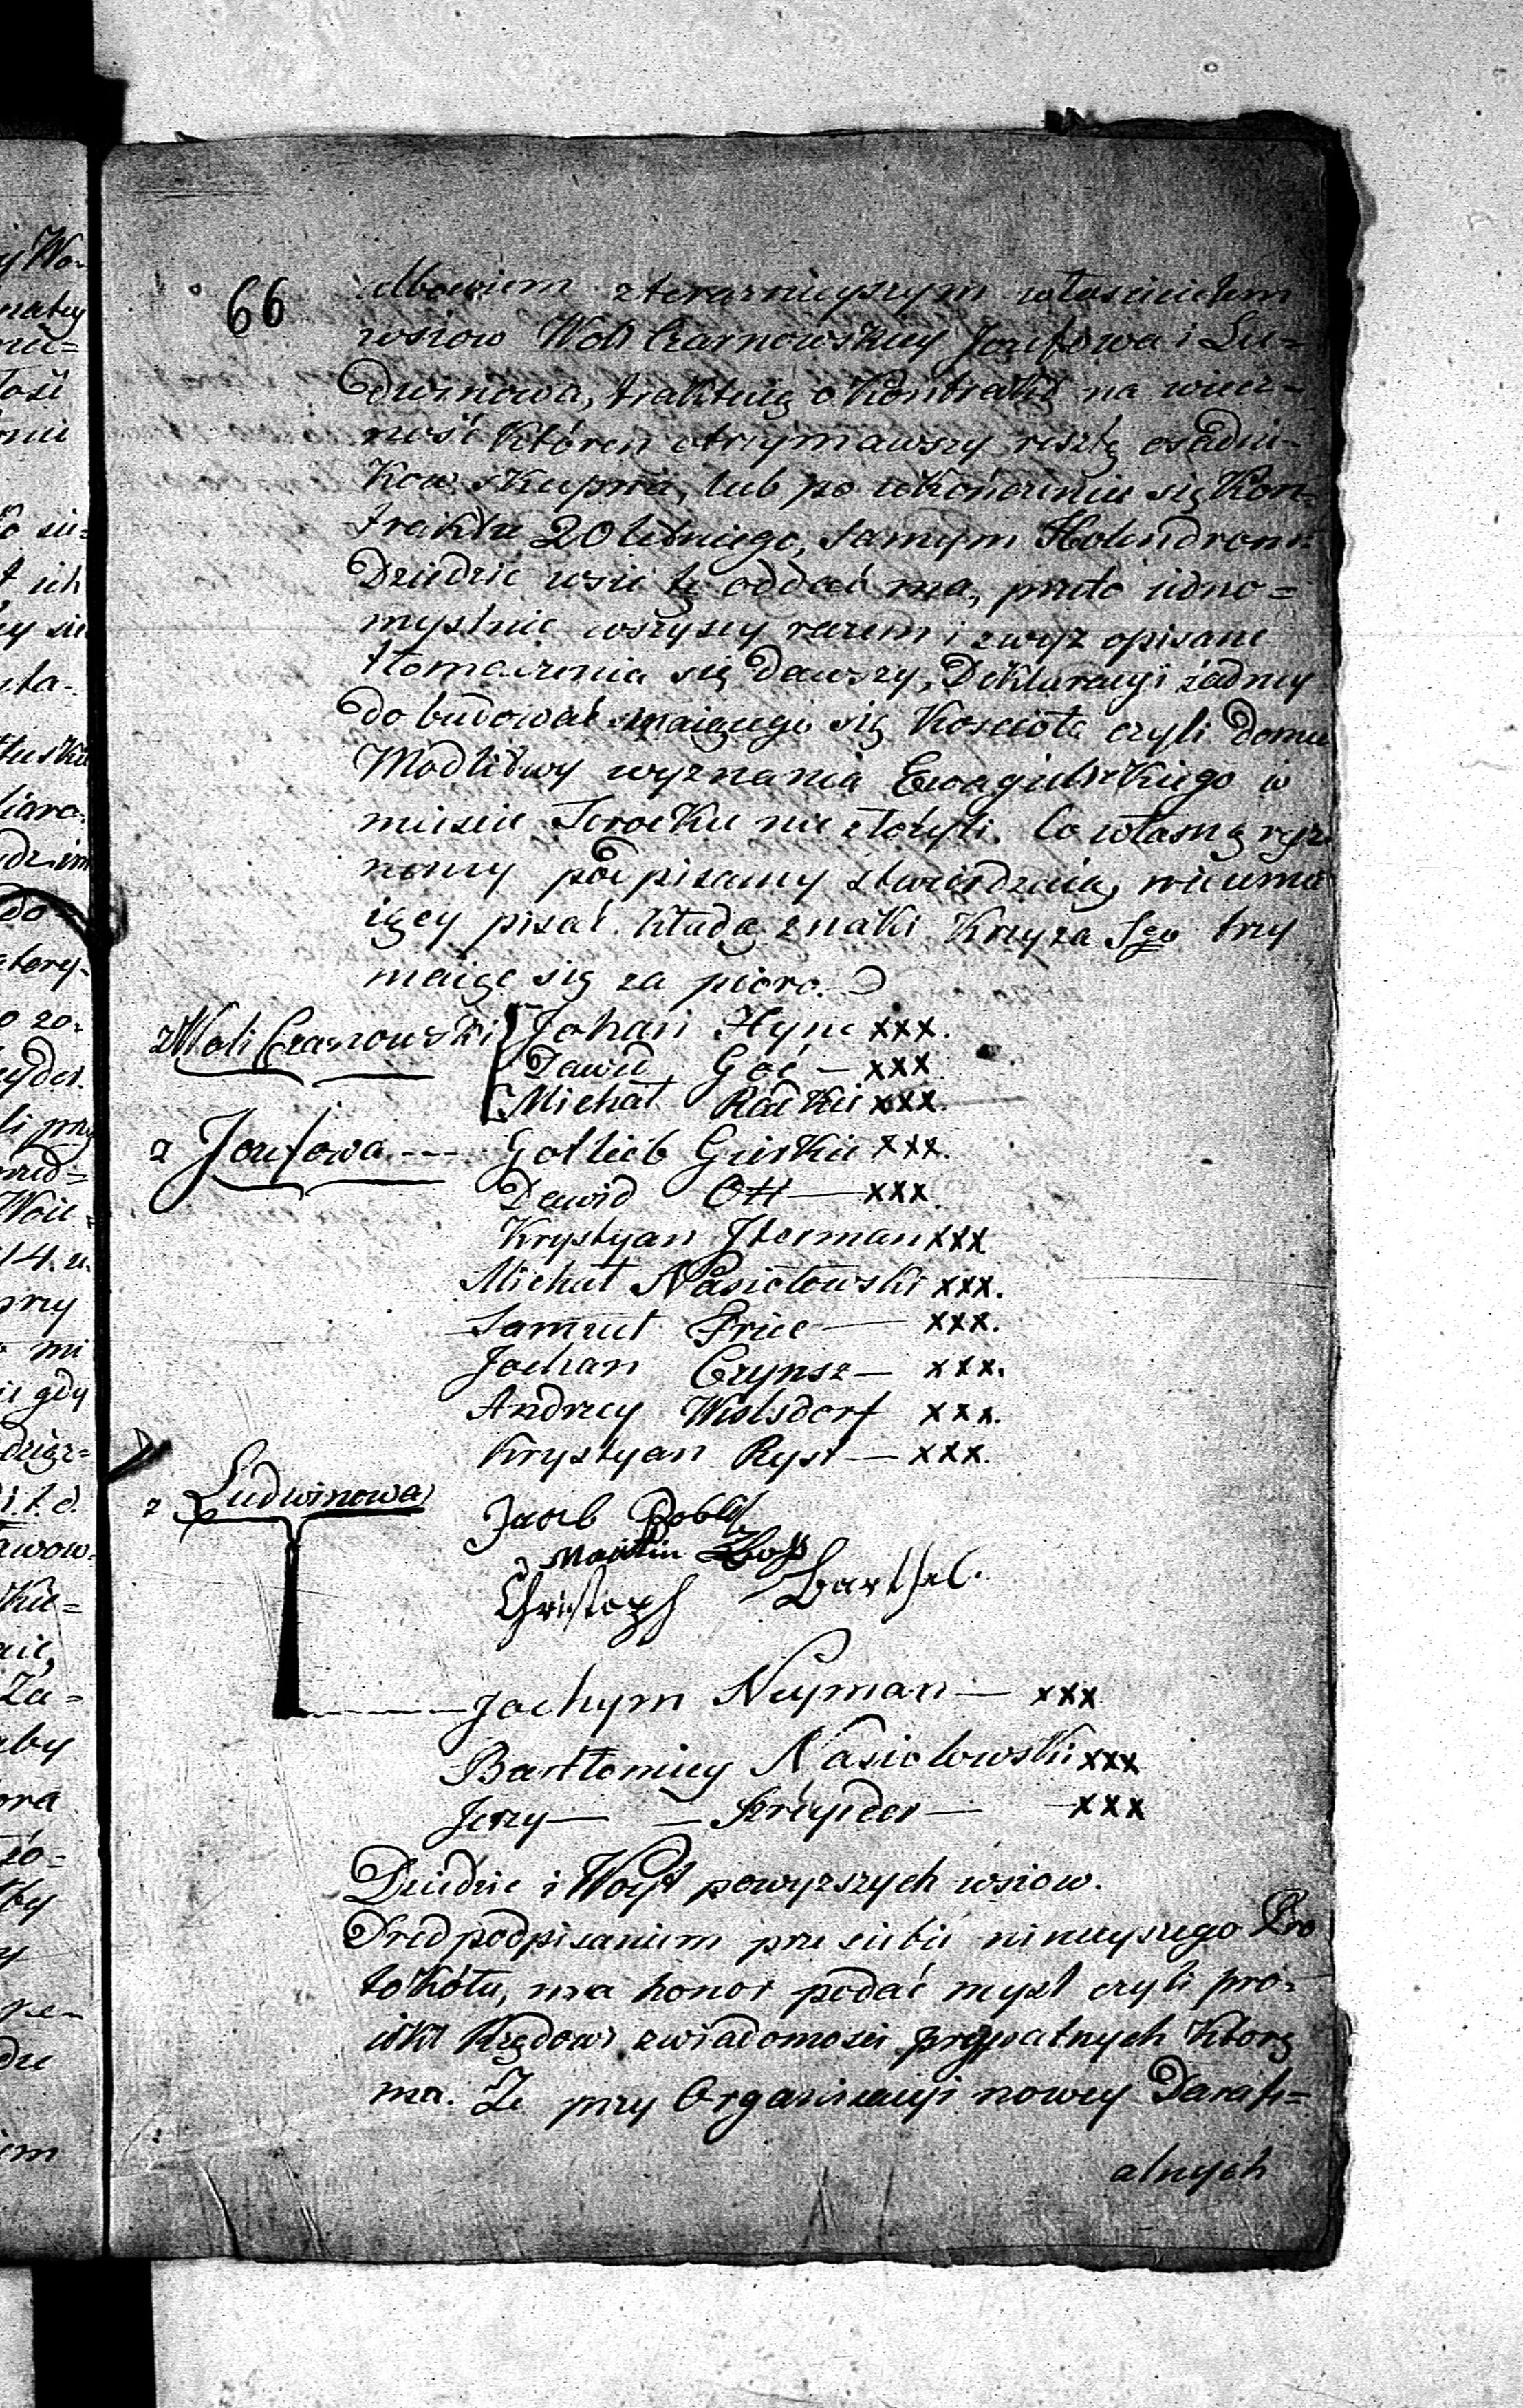 66
Albowiem z teraznieyszym włascicielem
wsiow Woli Czarnowskiey Jozefowa i Lu=
dwinowa, traktuią o Kontrakt na wiecz=
ność któren otrzymawszy resztę osadni=
kow skupnią, lub po ukończeniu się Kon=
traktu 20 letniego, samym Holendrom
Dziedzic wsie te oddać ma, przeto iedno=
myslnie wszyscy razem i zwyz opisane
tłomaczenia się dawszy, Deklaracyi żadney
do budować maiącego się Koscioła czyli domu
Modlitwy wyznania Ewagielickiego w
miescie Serocku nie złożyli. Co własną ręz
nomy podpisamy stwierdzaią, nieumie
iący pisać kładą znaki Krzyza Sgo trzy
maiąc się za pioro.
z Woli Czarnowski Johan Hync xxx.
Dawid Goć — xxx
Michał Radkie xxx.
z Jozefowa --- Gotlieb Gierkie xxx.
Dawid Ott — xxx.
Krystyan Jterman xxx
Michał Nasiołowski xxx.
Samuel Fried — xxx.
Jochan Czynsz — xxx.
Andrzey Wolsdorf xxx.
Krystyan Ryst — xxx.
z Ludwinowa Jacob
Martin
Christoph Barthel.
Jochym Neyman — xxx
Bartłomiey Nasiolowski xxx
Jerzy — — Sznyider — xxx
Dziedzic i Woyt powyzszych wsiow.
Pred podpisaniem prze siebie ninieyszego Pro
tokółu, ma honor podać mysl czyli pro=
iekt Rządowi z wiadomości prywatnych którą
ma. Ze przy Organizacyi nowey Parafi=
alnych